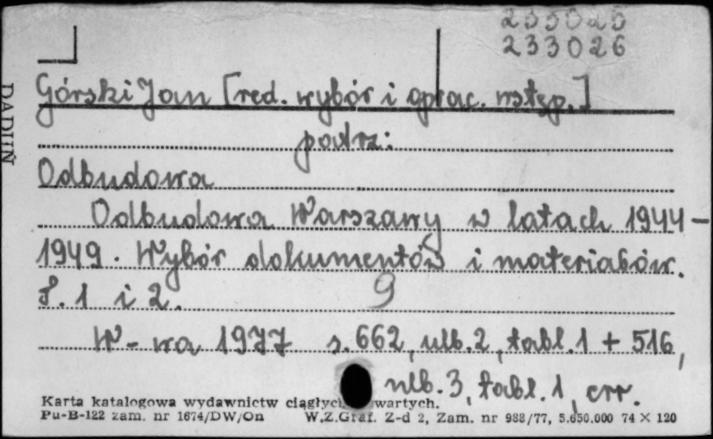 233025
233026
Górski Jan [red. wybór i oprac. wstęp.]
patrz:
Odbudowa
Odbudowa Warszawy w latach 1944-
1949. Wybór dokumentów i materiałów.
T. 1 i 2. 9
W-wa 1977 s. 662, nlb. 2, tabl. 1 + 516,
nlb. 3, tabl. 1, err.
Karta katalogowa wydawnictw ciągłych wartych.
Pu-B-122 zam. nr 1674/DW/On W.Z.Graf. Z-d 2, Zam. nr 988/77, 5.650.000 74 × 120